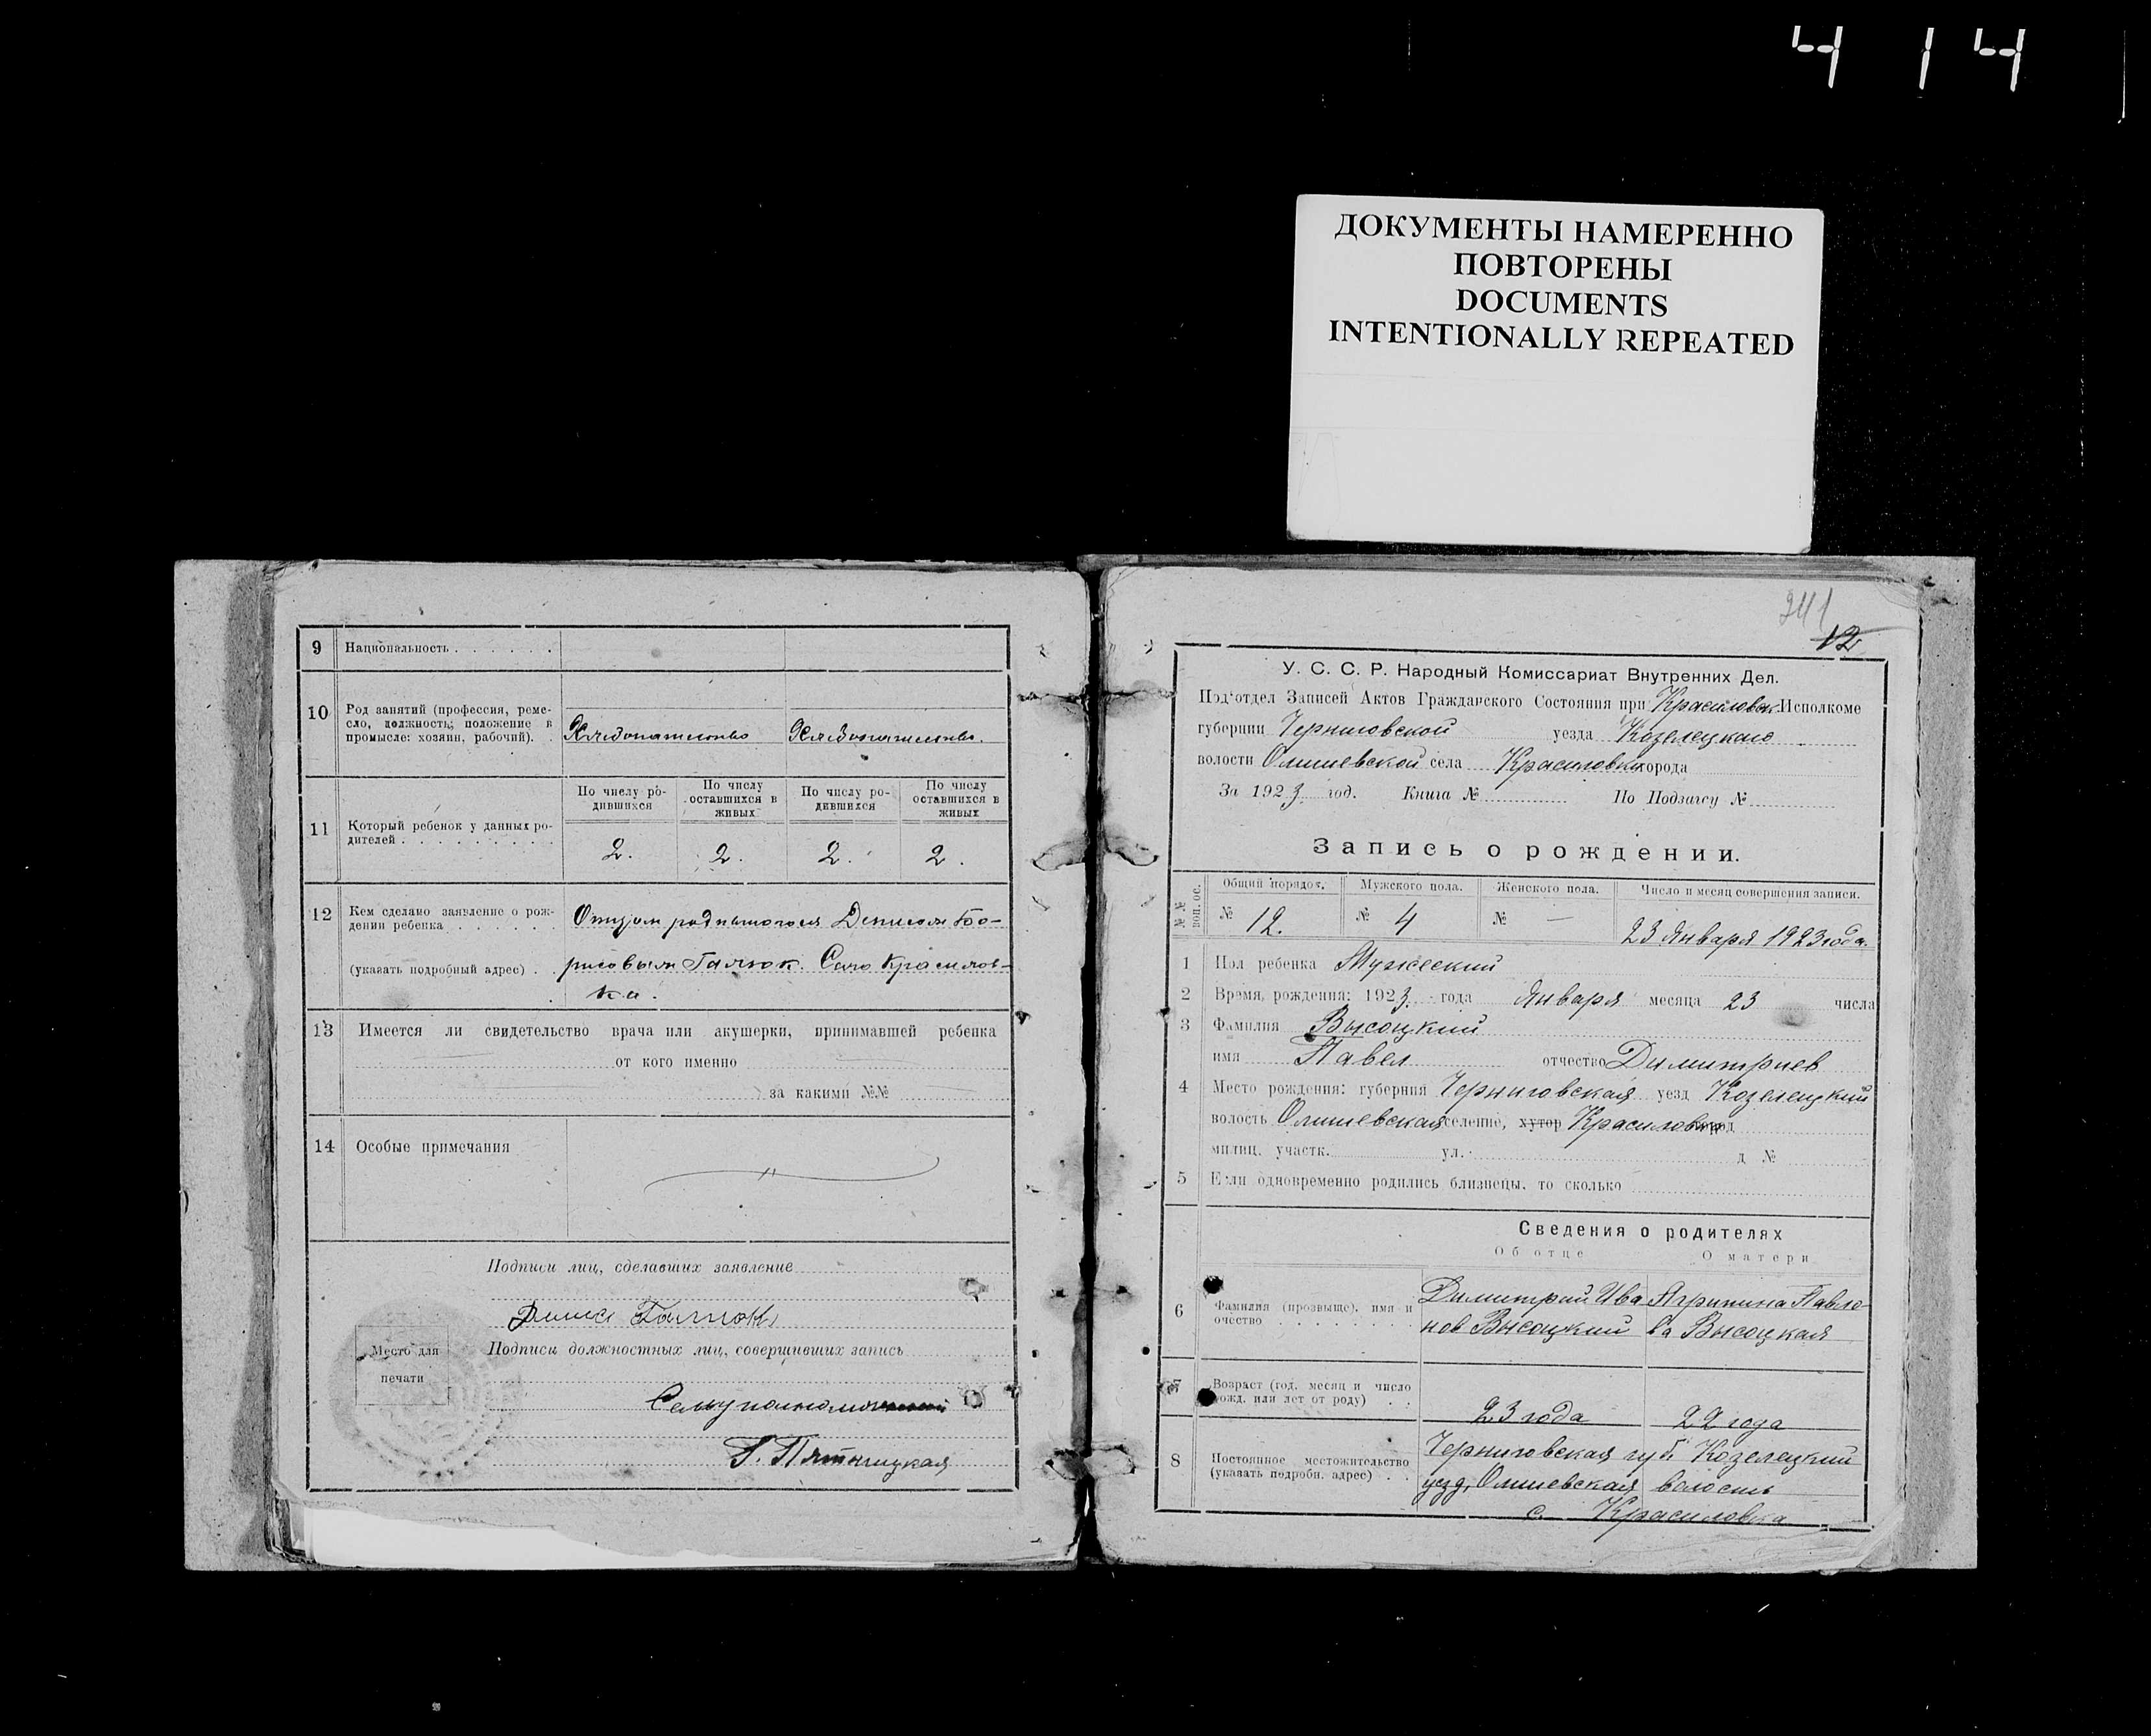 4 14
ДОКУМЕНТЫ НАМЕРЕННО
ПОВТОРЕНЫ
DOCUMENTS
INTENTIONALLY REPEATED
9 Национальность . . . . . .
10 Род занятий (профессия, реме-
сло, должность; положение в
промысле: хозяин, рабочий). .
Хлебопашество Хлебопашество.
11 Который ребенок у данных ро-
дителей . . . . . . . . . .
По числу ро-
дившихся
По числу
оставшихся в
живых
По числу ро-
дившихся
По числу
оставшихся в
живых
2. 2. 2. 2.
12 Кем сделано заявление о рож-
дении ребенка . . . . . .
(указать подробный адрес) . .
Отцом родившегося Денисом Бо-
рисовым Галюк. Село Красилов-
ка.
13 Имеется ли свидетельство врача или акушерки, принимавшей ребенка
от кого именно
за какими №№
14 Особые примечания
Подписи лиц, сделавших заявление
Денис Галюк
Подписи должностных лиц, совершивших запись
Место для
печати
Пятницкая
241
12
У. С. С. Р. Народный Комиссариат Внутренних Дел.
Под'отдел Записей Актов Гражданского Состояния при Красиловск. Исполкоме
губернии Черниговской уезда Козелецкого
волости Олишевской села Красиловка города
За 1923 год. Книга № По Подзагсу №
Запись о рождении.
№№ Общий порядок. Мужского пола. Женского пола. Число и месяц совершения записи.
№ 12. № 4 № — 23 Января 1923 года.
1 Пол ребенка Мужеский
2 Время, рождения: 1923. года Января месяца 23 числа
3 Фамилия Высоцкий
имя Павел отчество Димитриев
4 Место рождения: губерния Черниговская уезд Козелецкий
волость Олишевская селение, хутор Красиловка город
милиц. участк. ул. д №
5 Если одновременно родились близнецы, то сколько
Сведения о родителях
Об отце О матери
6 Фамилия (прозвыще), имя и
очество . . . . . . . .
Димитрий Ива Агрипина Павло-
нов Высоцкий ва Высоцкая
7 Возраст (год, месяц и число
рожд. или лет от роду) . .
23 года 22 года
8 Постоянное местожительство
(указать подробн. адрес) . .
Черниговская губ. Козелецкий
уезд, Олишевская волость
с. Красиловка